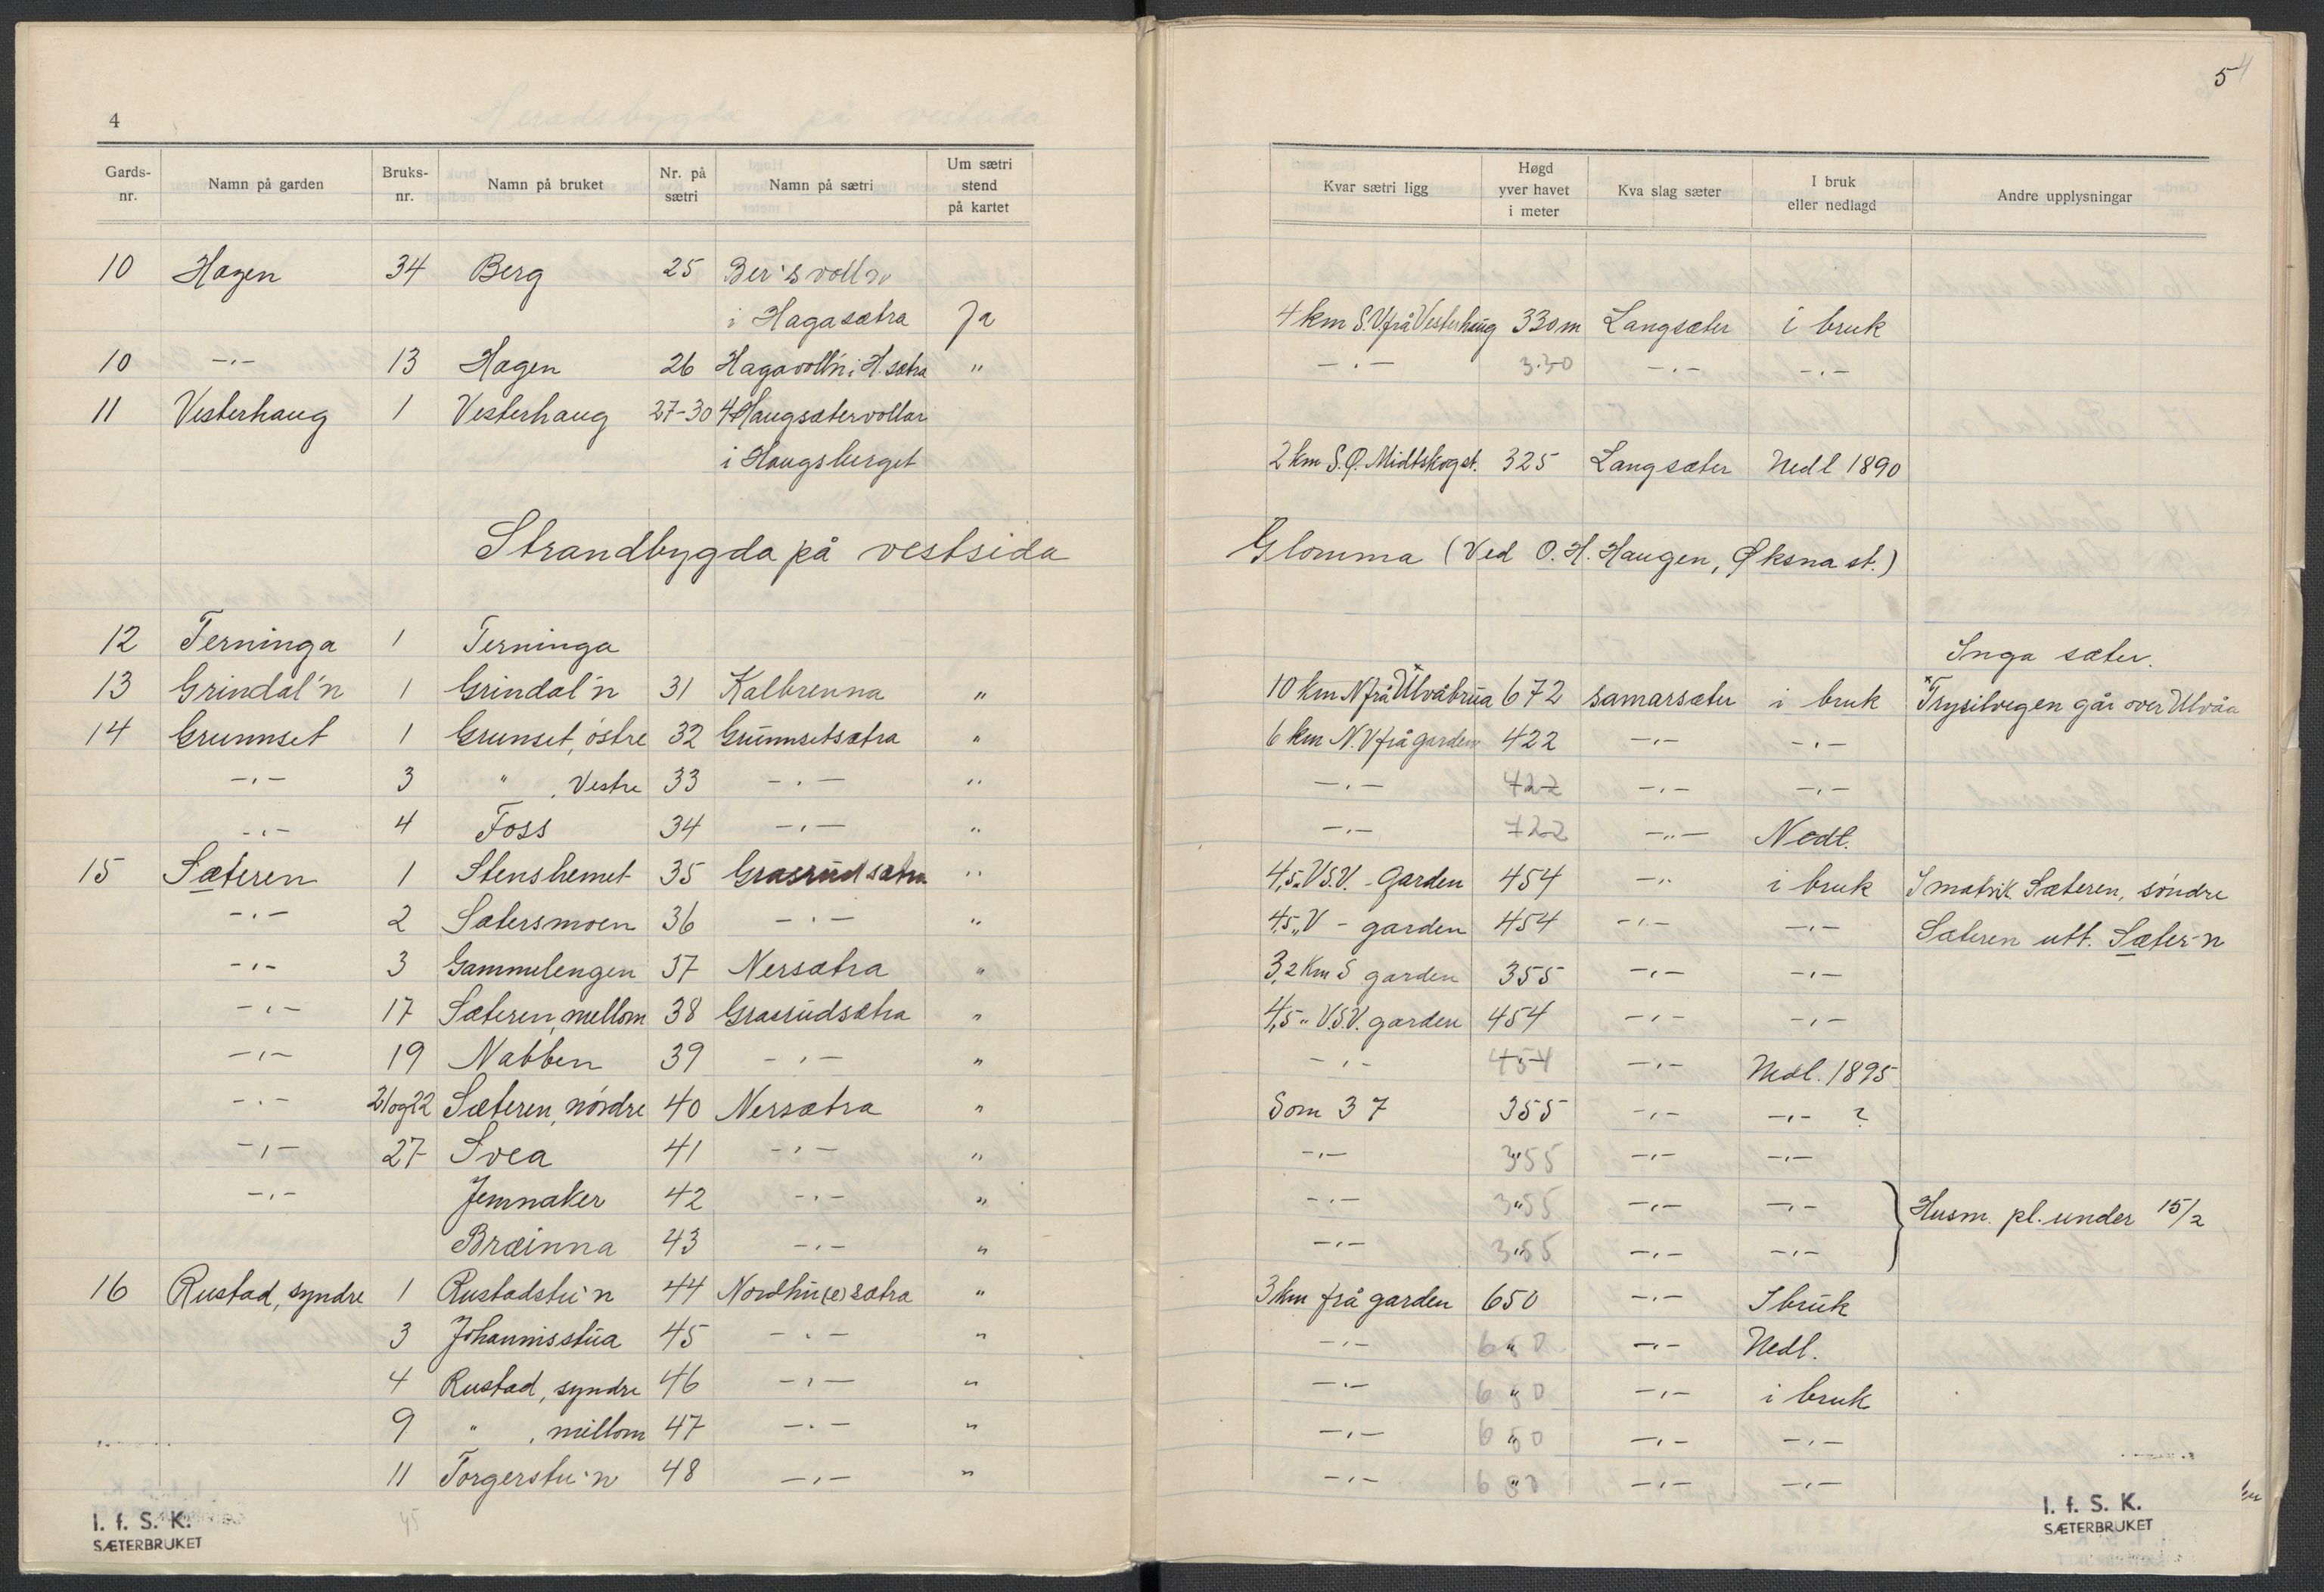 4
Gards-nr. Namn på garden Bruks-nr. Namn på bruket Nr. på sætri Namn på sætri Um sætri stend på kartet
10 Hagen 34 Berg 25 Ber's voll'n
i Hagasætra Ja
10 -"- 13 Hagen 26 Hagavoll'n i H.sætra "
11 Vesterhaug 1 Vesterhaug 27-30 4 Haugsætervollar
i Haugsberget
Strandbygda på vestsida
12 Terninga 1 Terninga
13 Grindal'n 1 Grindal'n 31 Kalbrenna "
14 Grunnset 1 Grunset, östre 32 Grunnsetsætra "
-"- 3 " , Vestre 33 -"- "
-"- 4 Foss 34 -"- "
15 Sæteren 1 Stenshemet 35 Grasrudsætra "
-"- 2 Sætersmoen 36 -"- "
-"- 3 Gammelengen 37 Nersætra "
-"- 17 Sæteren, mellom 38 Grasrudsætra "
-"- 19 Nabben 39 -"- "
-"- 21 og 22 Sæteren, nördre 40 Nersætra "
-"- 27 Svea 41 -"- "
-"- Jemnaker 42 -"- "
Bræinna 43 -"- "
16 Rustad, syndre 1 Rustadstu'n 44 Nordhu(e)sætra "
3 Johannisstua 45 -"- "
4 Rustad, syndre 46 -"- "
9 " , millom 47 -"- "
11 Torgerstu'n 48 -"- "
45
I. f. S. K.
SÆTERBRUKET
5 4
Kvar sætri ligg Høgd yver havet i meter Kva slag sæter I bruk eller nedlagd Andre upplysningar
4 km S.V frå Vesterhaug 330 m Langsæter i bruk
-"- 330 -"- -"-
2 km S.Ø. Midtskog st. 325 Langsæter Nedl 1890
Glomma (Ved O. H. Haugen, Øksna st.)
Inga sæter.
10 km N frå Ulvåbrua* 672 samarsæter i bruk *Trysilvegen går over Ulvåa
6 km N.V frå garden 422 -"- -"-
-"- 422 -"- -"-
-"- 722 -"- Nedl.
4,5 " V S.V. - garden 454 -"- i bruk I matrik. Sæteren, söndre
4,5 " V - garden 454 -"- -"- Sæteren utt. Sæter'n
3,2 Km S garden 355 -"- -"-
4,5 " V.S.V. garden 454 -"- -"-
-"- 454 -"- Nedl. 1895
Som 37 355 -"- -"- ?
-"- 355 -"- -"-
-"- 355 -"- -"- } Husm. pl. under 15/2
-"- 355 -"- -"-
3 km frå garden 650 -"- I bruk
-"- 650 -"- Nedl.
-"- 650 -"- i bruk
-"- 650 -"- -"-
-"- 650 -"- -"-
I. f. S. K.
SÆTERBRUKET